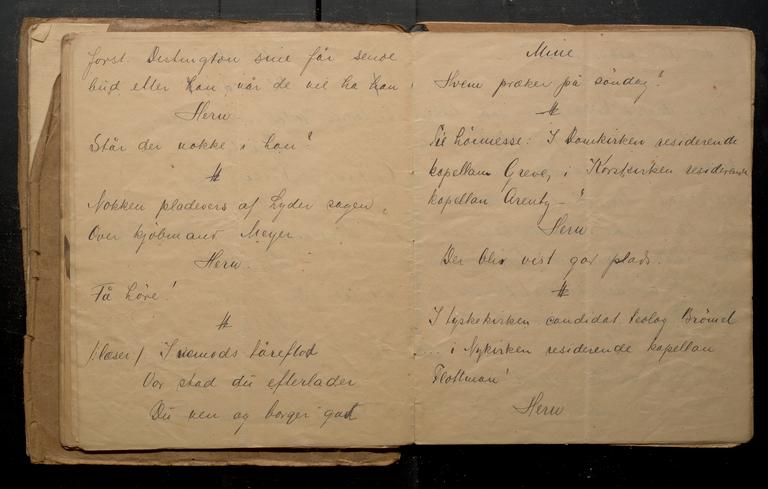 først. Distington sine får sende
bud etter han når de vil ha han!
Herw.
Står der nokke i han?
#
Nokken pladevers af Lyder sagen
Over kjøbmand Meyer.
Herw.
Få høre!
#
/:læser/ I vemods tåreflod
Vor stad du efterlader
Du ven og borger god
Mine
Hvem præker på søndag?
#
Til høimesse: I Domkirken residerende
kapellan Greve, i Korskirken residerende
kapellan Arentz –?
Herw.
Der blir vist god plads.
#
I tyskekirken candidat teolog Brömel
... i Nykirken residerende kapellan
Flottman!
Herw